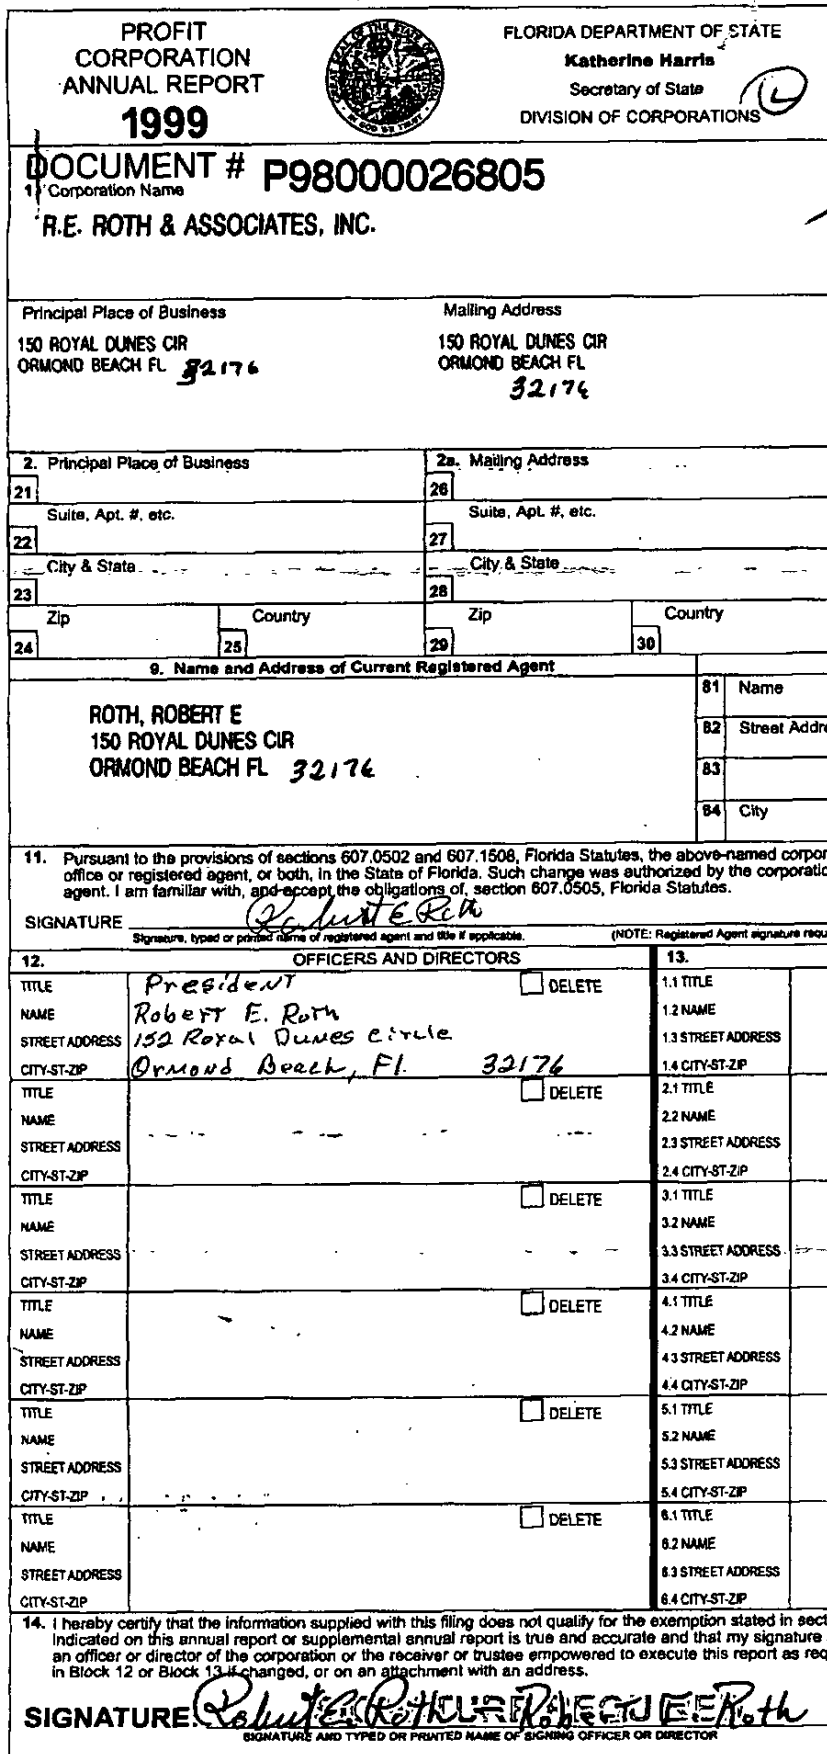 PROFIT
CORPORATION
ANNUAL REPORT
1999
FLORIDA DEPARTMENT OF STATE
Katherine Harris
Secretary of State
DIVISION OF CORPORATIONS
DOCUMENT # P98000026805
1. Corporation Name
R.E. ROTH & ASSOCIATES, INC.
Principal Place of Business
150 ROYAL DUNES CIR
ORMOND BEACH FL 32176
Mailing Address
150 ROYAL DUNES CIR
ORMOND BEACH FL
32176
2. Principal Place of Business
2a. Mailing Address
21
26
Suite, Apt. #, etc.
Suite, Apt. #, etc.
22
27
City & State
City & State
23
28
Zip Country Zip Country
24 25 29 30
9. Name and Address of Current Registered Agent
ROTH, ROBERT E
150 ROYAL DUNES CIR
ORMOND BEACH FL 32176
81 Name
82 Street Addre
83
84 City
11. Pursuant to the provisions of sections 607.0502 and 607.1508, Florida Statutes, the above-named corpor
office or registered agent, or both, in the State of Florida. Such change was authorized by the corporatio
agent. I am familiar with, and accept the obligations of, section 607.0505, Florida Statutes.
SIGNATURE Robert E Roth
Signature, typed or printed name of registered agent and title if applicable. (NOTE: Registered Agent signature requ
12. OFFICERS AND DIRECTORS 13.
TITLE President DELETE 1.1 TITLE
NAME Robert E. Roth 1.2 NAME
STREET ADDRESS 152 Royal Dunes Circle 1.3 STREET ADDRESS
CITY-ST-ZIP Ormond Beach, Fl. 32176 1.4 CITY-ST-ZIP
TITLE DELETE 2.1 TITLE
NAME 2.2 NAME
STREET ADDRESS 2.3 STREET ADDRESS
CITY-ST-ZIP 2.4 CITY-ST-ZIP
TITLE DELETE 3.1 TITLE
NAME 3.2 NAME
STREET ADDRESS 3.3 STREET ADDRESS
CITY-ST-ZIP 3.4 CITY-ST-ZIP
TITLE DELETE 4.1 TITLE
NAME 4.2 NAME
STREET ADDRESS 4.3 STREET ADDRESS
CITY-ST-ZIP 4.4 CITY-ST-ZIP
TITLE DELETE 5.1 TITLE
NAME 5.2 NAME
STREET ADDRESS 5.3 STREET ADDRESS
CITY-ST-ZIP 5.4 CITY-ST-ZIP
TITLE DELETE 6.1 TITLE
NAME 6.2 NAME
STREET ADDRESS 6.3 STREET ADDRESS
CITY-ST-ZIP 6.4 CITY-ST-ZIP
14. I hereby certify that the information supplied with this filing does not qualify for the exemption stated in sect
indicated on this annual report or supplemental annual report is true and accurate and that my signature
an officer or director of the corporation or the receiver or trustee empowered to execute this report as req
in Block 12 or Block 13 if changed, or on an attachment with an address.
SIGNATURE: Robert E. Roth Robert E. Roth
SIGNATURE AND TYPED OR PRINTED NAME OF SIGNING OFFICER OR DIRECTOR